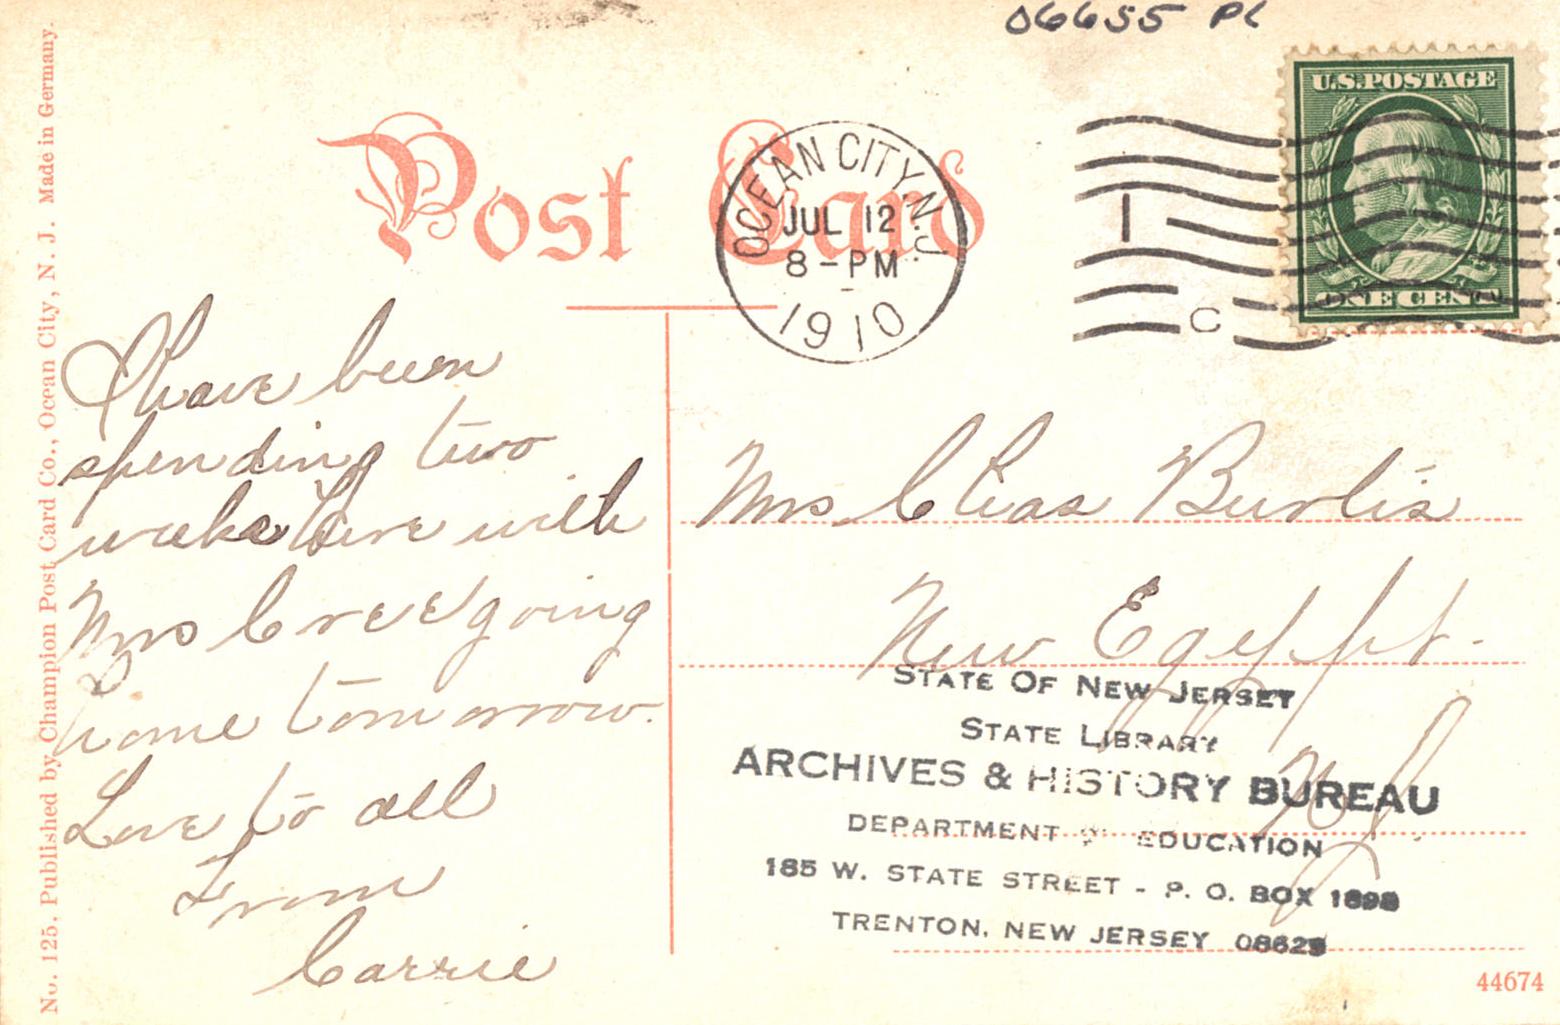 06655 PC
U.S. POSTAGE
ONE CENT
Post Card
OCEAN CITY, N.J.
JUL 12
8-PM
1910
1
C
No. 125. Published by Champion Post Card Co., Ocean City, N. J. Made in Germany.
I have been
spending two
weeks here with
Mrs Cree going
home tomorrow.
Love to all
From
Carrie
Mrs Chas Burtis
New Egypt.
N J.
STATE OF NEW JERSEY
STATE LIBRARY
ARCHIVES & HISTORY BUREAU
DEPARTMENT EDUCATION
185 W. STATE STREET - P. O. BOX 1898
TRENTON, NEW JERSEY 08625
44674